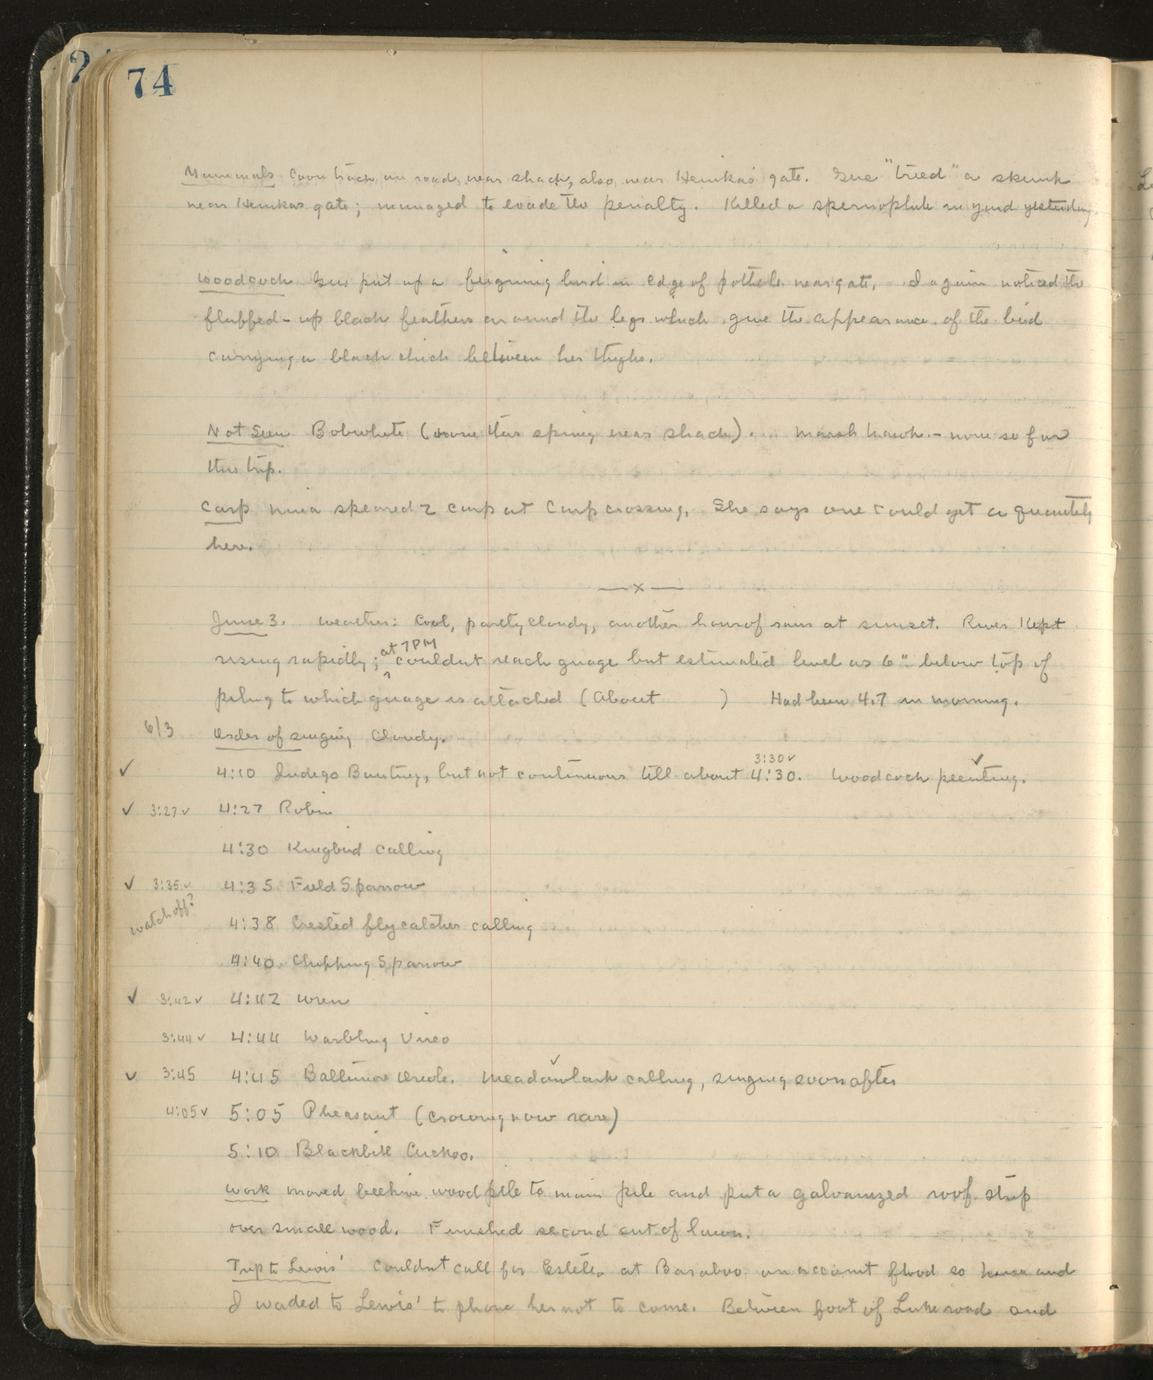 74
Mammals Coon track on road, near shack, also near Henika's gate. Gus "tried" a skunk
near Henikas gate; managed to evade the penalty. Killed a spermophile in yard yesterday.
Woodcock Gus put up a feigning bird in edge of pothole near gate. I again noticed the
fluffed-up black feathers around the legs which give the appearance of the bird
carrying a black chick between her thighs.
Not Seen Bobwhite (none this spring near shack). Marsh hawk - none so far
this trip.
Carp Nina speared 2 carp at Carp crossing. She says one could get a quantity
here.
—x—
June 3. Weather: Cool, partly cloudy, another hour of rain at sunset. River kept
rising rapidly; at 7 PM couldnt reach guage but estimated level as 6" below top of
piling to which guage is attached (About        ) Had been 4.7 in morning.
6/3 Order of singing Cloudy.
3:30 ✓
✓ 4:10 Indigo Bunting, but not continuous till about 4:30. Woodcock peenting. ✓
✓ 3:27 ✓ 4:27 Robin
4:30 Kingbird calling
✓ 3:35 ✓ 4:35 Field Sparrow
watch off? 4:38 Crested flycatcher calling
4:40 Chipping Sparrow
✓ 3:42 ✓ 4:42 Wren
3:44 ✓ 4:44 Warbling Vireo
✓ 3:45 4:45 Baltimore Oriole. Meadowlark ✓ calling, singing soon after
4:05 ✓ 5:05 Pheasant (crowing now rare)
5:10 Blackbill Cuckoo.
Work moved beehive wood pile to main pile and put a galvanized roof strip
over small wood. Finished second cut of lawn.
Trip to Lewis' Couldnt call for Estella at Baraboo on account flood so and
I waded to Lewis' to phone her not to come. Between foot of Lake road and